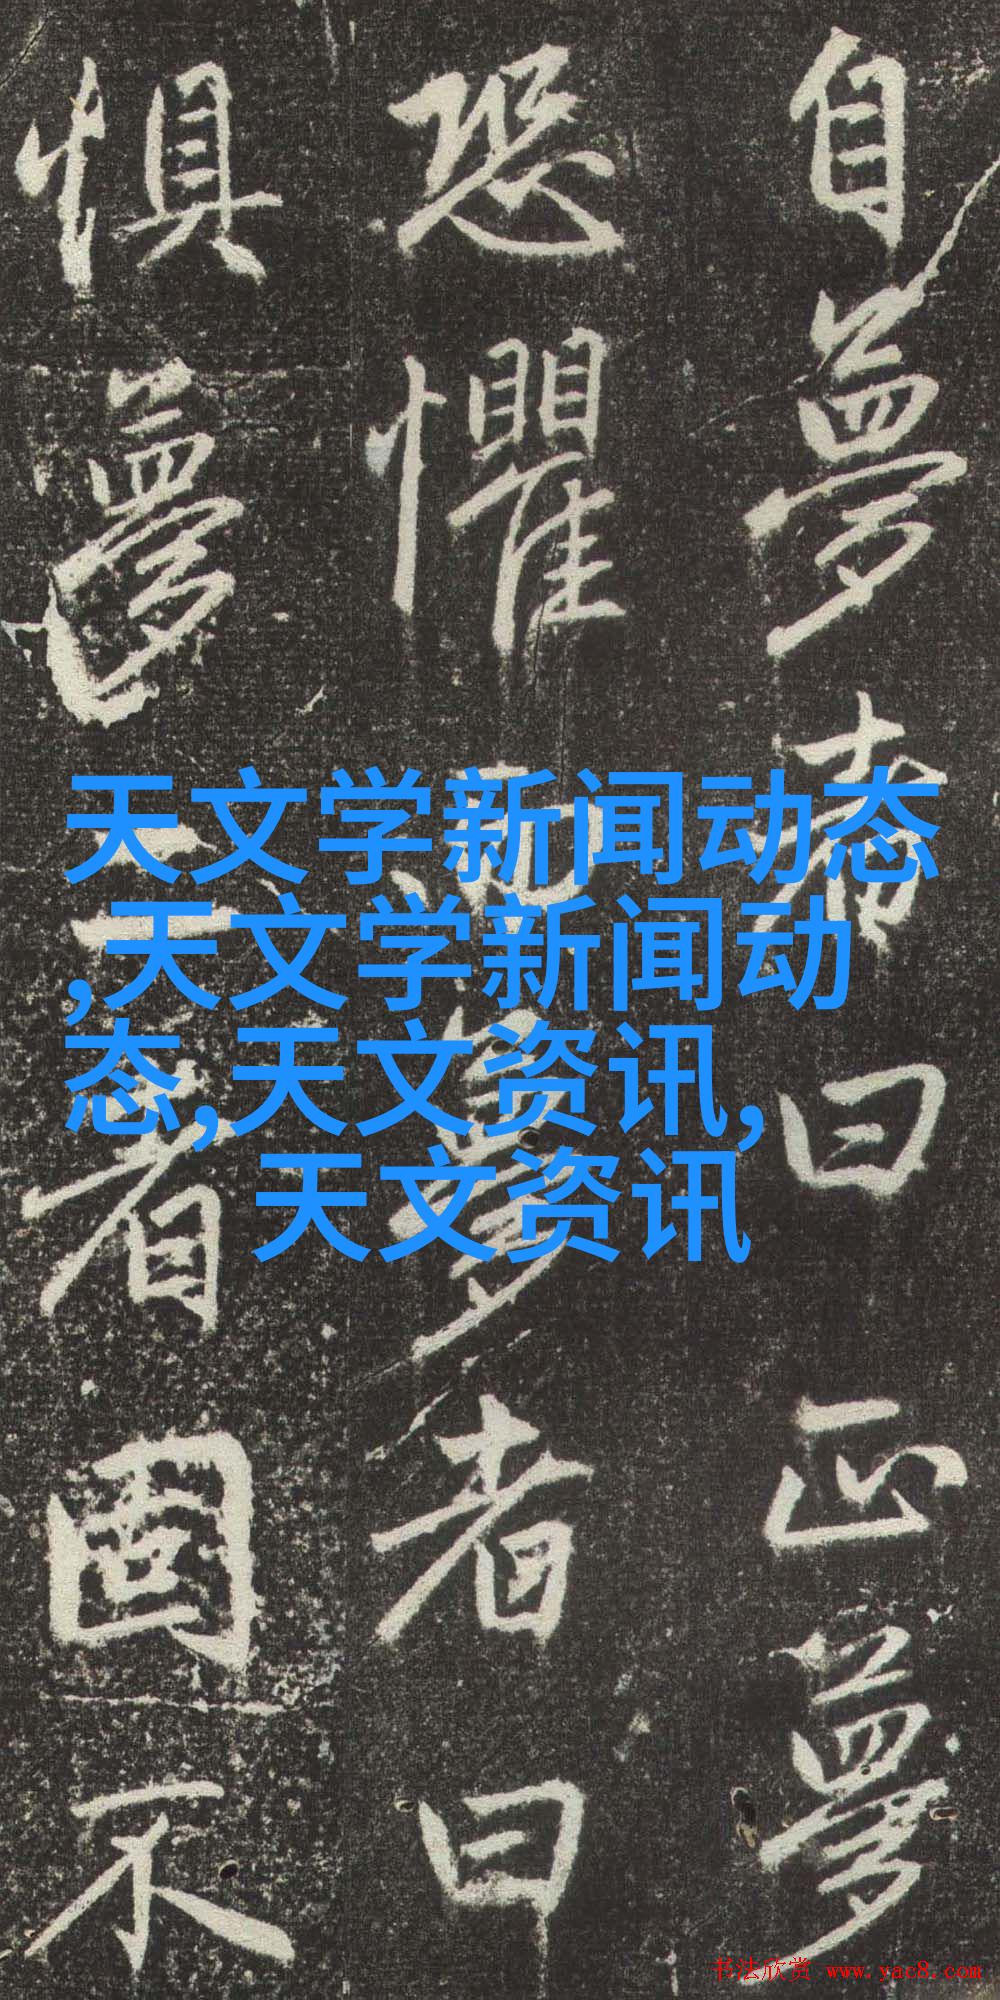 自夢曰正夢
恐懼夢者曰
惧夢二者固不
天文学新闻动态
,天文学新闻动
态,天文资讯,
天文资讯
书法欣赏 www.yac8.com